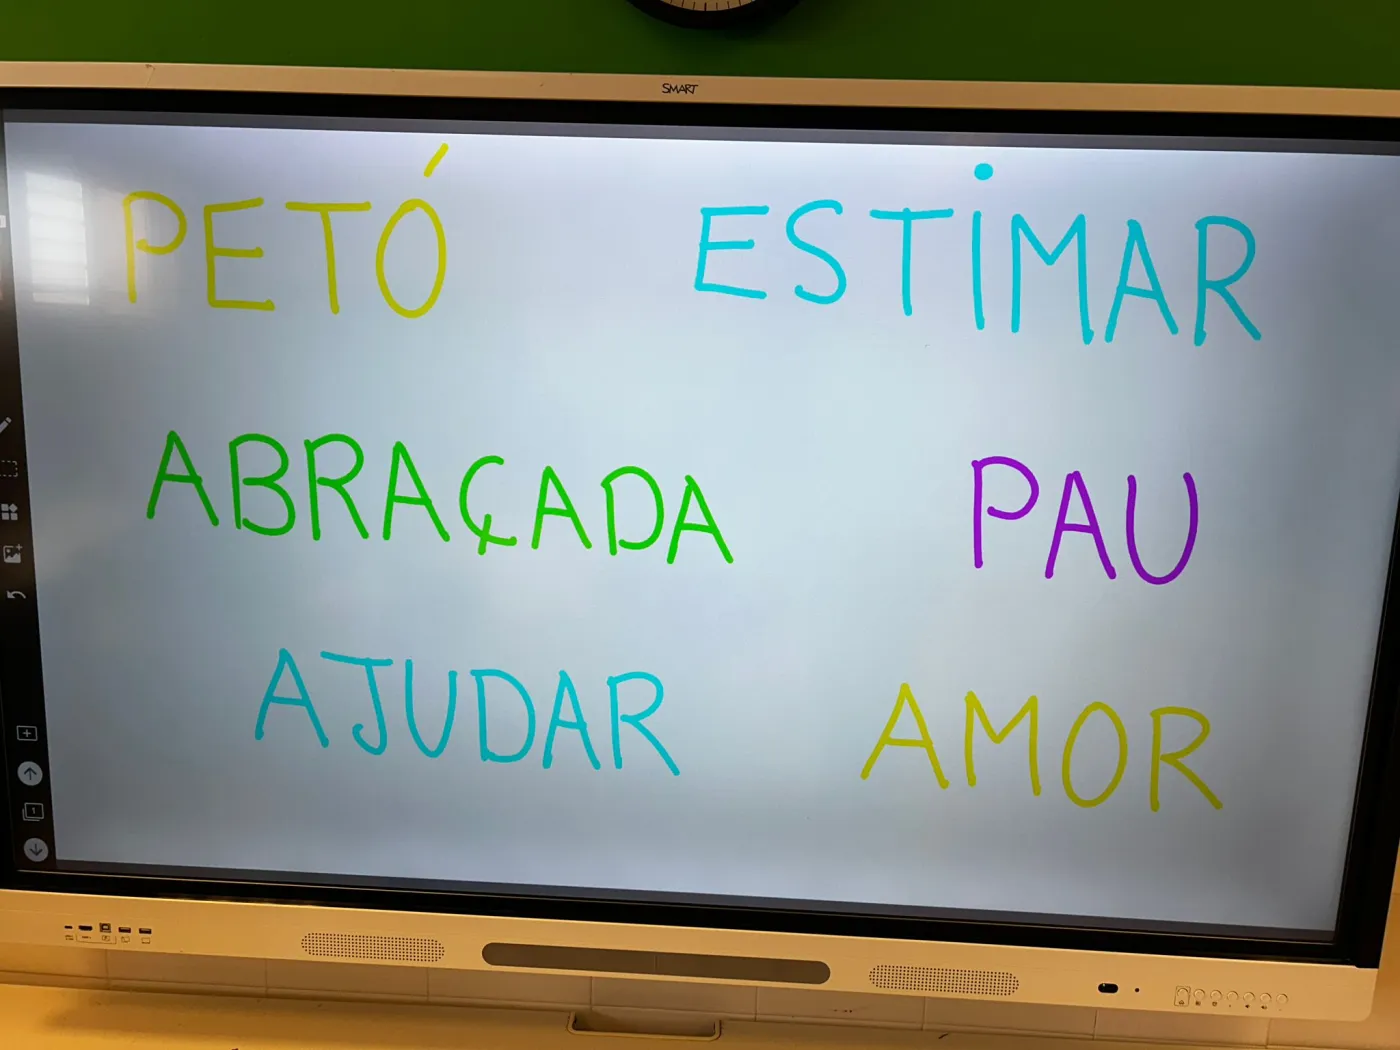 SMART
PETÓ ESTIMAR
ABRAÇADA PAU
AJUDAR AMOR
1